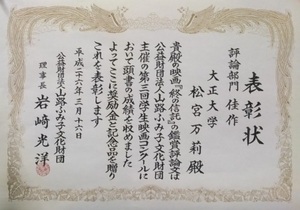 表彰状
評論部門 佳作
大正大学
松宮万莉殿
貴殿の映画『終の信託』の鑑賞評論文は
公益財団法人山路ふみ子文化財団
主催の第三回学生映画コンクールに
おいて頭書の成績を收めました
よってここに奨励金と記念品を贈り
これを表彰します
平成二十六年三月十六日
公益財団法人山路ふみ子文化財団
理事長 岩崎光洋